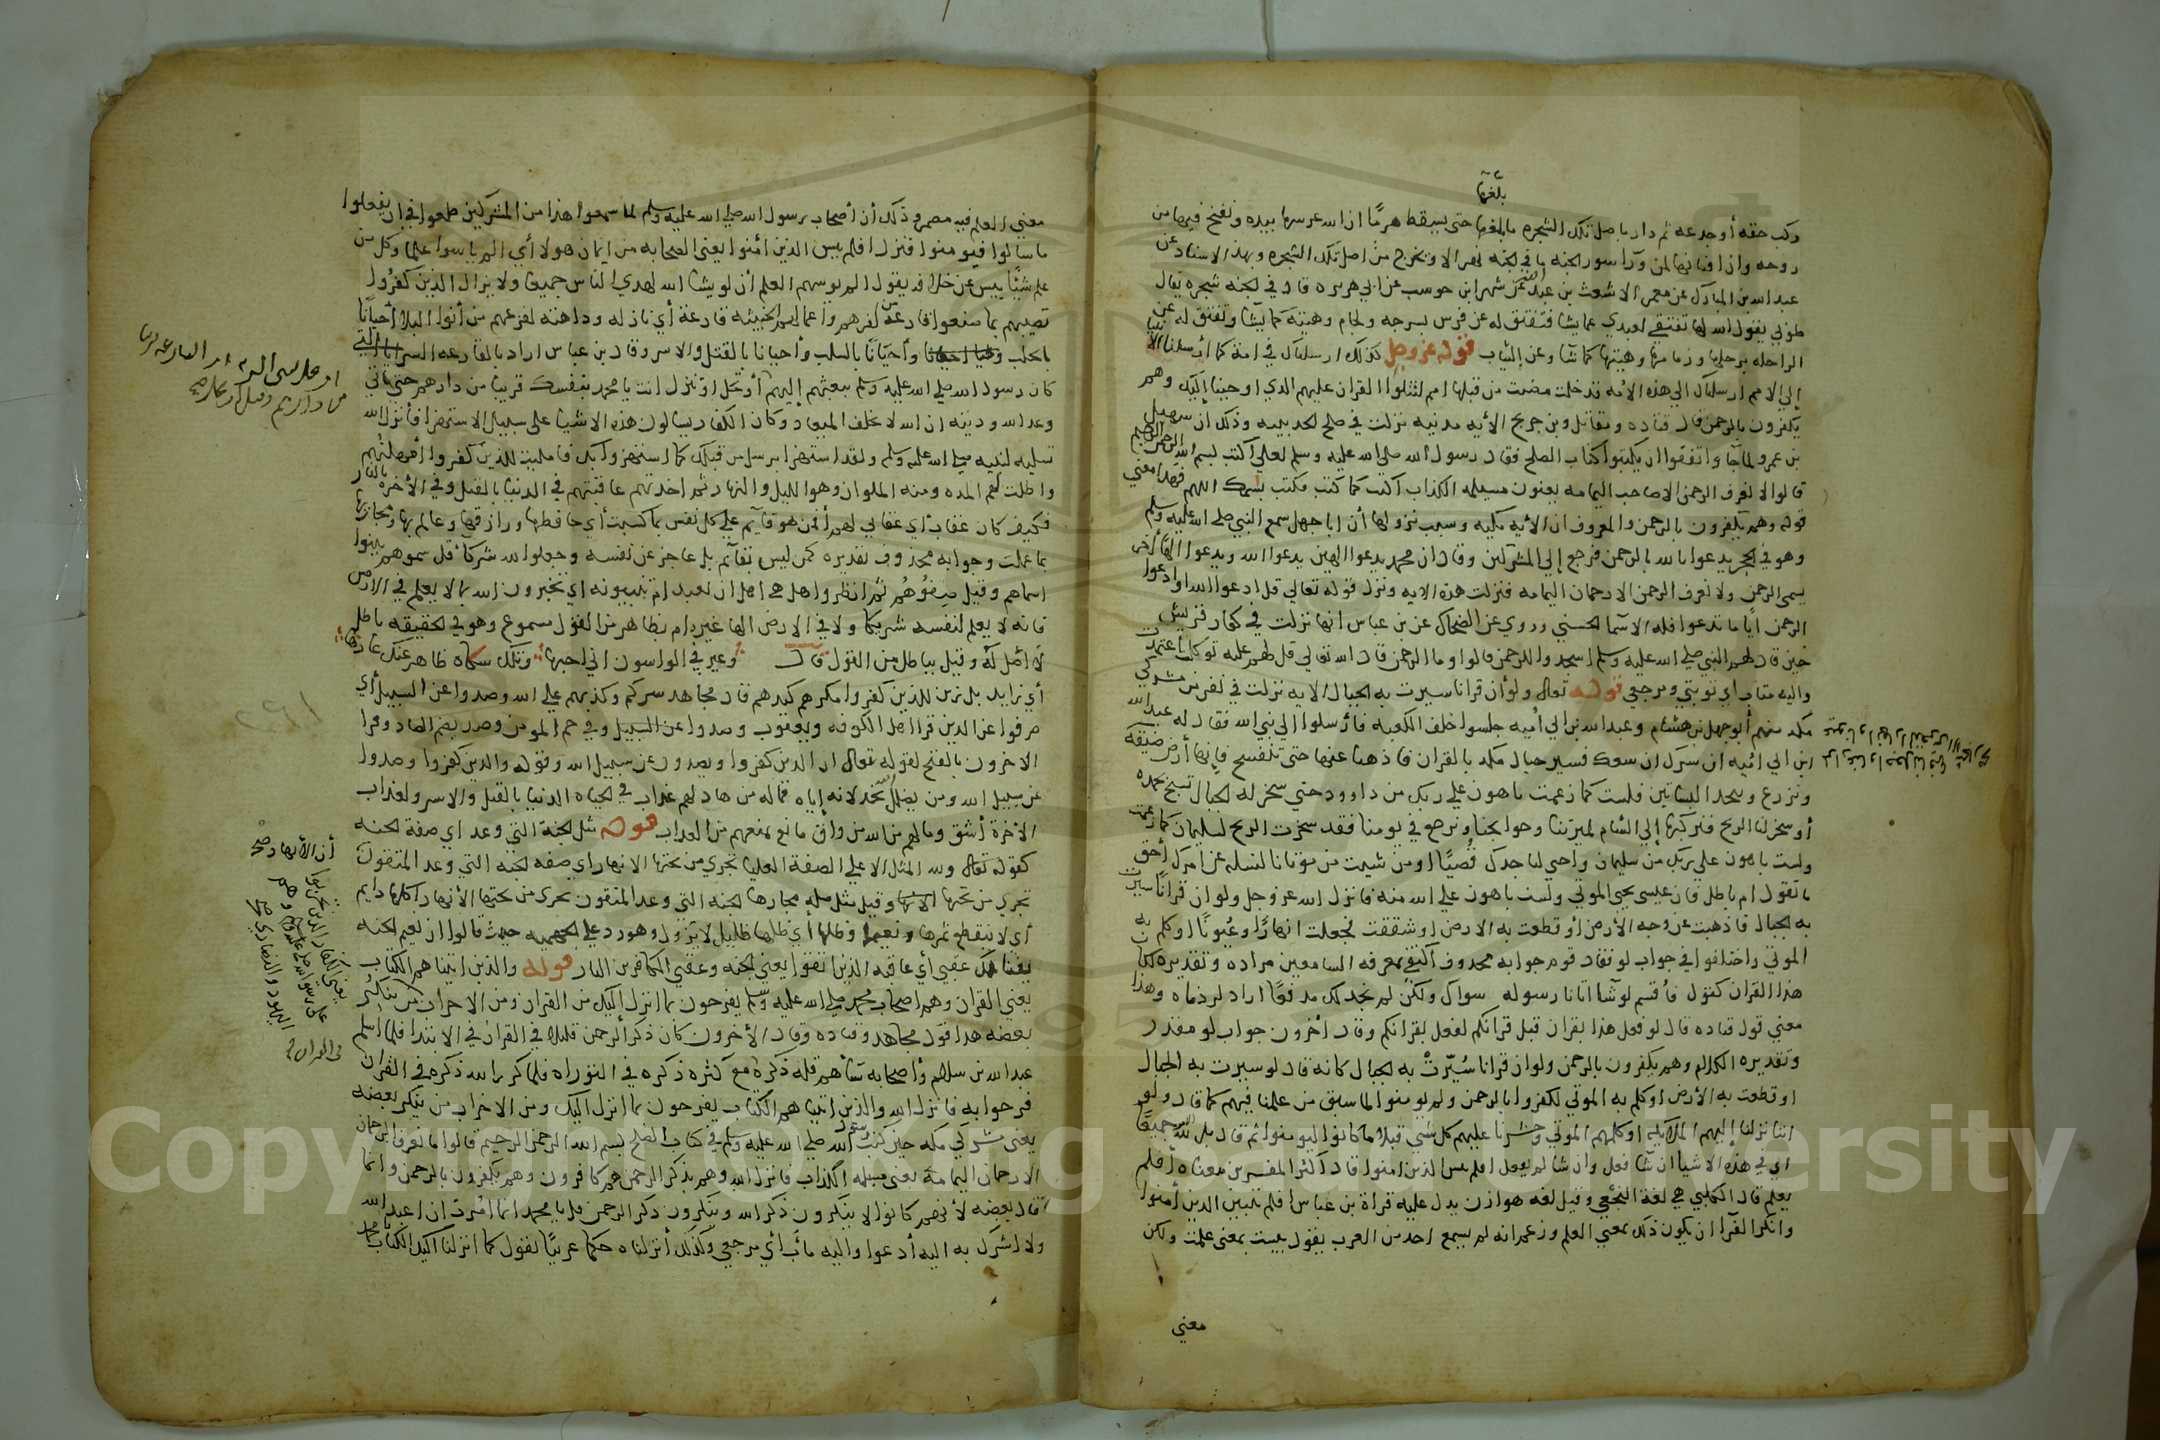 بلغها
ركب حقه أو جدعه ثم دار باصل تلك الشجره ما بلغها حتى يسقط هرمًا ان الله غرسها بيده ونفخ فيها من
روحه وان افنانها لمن ورآ سور الجنه ما في الجنه نهر الا ويخرج من اصل تلك الشجره وبهذا الاسناد عن
عبد الله بن المبارك عن معمر الاشعث بن عبد الله عن شهر ابن حوشب عن ابي هريره قال في الجنه شجره يقال
طوبي يقول الله لها تفتقي لعبدي عما يشا فتفتق له عن فرس بسرجه ولجام وهيئته كما يشا وتفتق له عن
الراحله برحلها وزمامها وهيئتها كما شا وعن الثياب قوله عز وجل كذلك ارسلناك في امة كما أرسلنا الا
إلي الامم ارسلناك الي هذه الامه قد خلت مضت من قبلها امم لتتلوا القران عليهم الذي اوحينا إليك وهم
يكفرون بالرحمن قال قتاده ومقاتل وبن جريج الأيه مدنيه نزلت في صلح الحديبيه وذلك ان سهيل
بن عمرو لما جآ واتفقوا ان يكتبوا كتاب الصلح فقال رسول الله صلى الله عليه وسلم لعلي أكتب بسم الله الرحمن الرحيم
قالوا لا نعرف الرحمن الا صاحب اليمامه يعنون مسيلمه الكذاب أكتب كما كتب فكتب بسمك اللهم فهذا معني
قوله وهم يكفرون بالرحمن والمعروف ان الأيه مكيه وسبب نزولها أن ابا جهل سمع النبي صلى الله عليه وسلم
وهو في الحجر يدعوا يا الله يا رحمن فرجع إلي المشركين وقال ان محمد يدعوا الهين يدعوا الله ويدعوا الهًا أخر
يسمى الرحمن ولا نعرف الرحمن الا رحمان اليمامه فنزلت هذه الايه ونزل قوله تعالي قل ادعوا الله او ادعوا
الرحمن أيًا ما تدعوا فله الاسما الحسني وروي عن الضحاك عن بن عباس انها نزلت في كفار قريش
حين قال لهم النبي صلى الله عليه وسلم اسجدوا للرحمن قالوا وما الرحمن قال الله تعالي قل لهم عليه توكلت اعتمدت
واليه متاب اي توبتي ومرجعي قوله تعالى ولو أن قرانا سيرت به الجبال الايه نزلت في نفر من مشركي
مكه منهم أبو جهل بن هشام وعبد الله بن ابي أميه جلسوا خلف الكعبه فأرسلوا الي نبي الله فقال له عبد الله
ابن ابي اميه ان سرك ان نتبعك فسير جبال مكه بالقران فاذهبها عنها حتى تنفسح فإنها أرض ضيقه
ونزرع ونتخذ البساتين فلست كما زعمت باهون علي ربك من داوود حتي سخر له الجبال تسبح بحمده
أو سخر لنا الريح فنركبها إلي الشام لميرتنا وحوايجنا ونرجع في يومنا فقد سخرت الريح لسليمان كما زعمت
ولست باهون علي ربك من سليمان واحي لنا جدك قُصيًا او من شيت من موتانا لنسله عن امرك أحق
ما تقول ام باطل فان عيسى يحي الموتي ولست باهون علي الله منه فانزل الله عز وجل ولو ان قرانًا سيرت
به الجبال فاذهبت عن وجه الأرض أو قطعت به الارض اوشققت فجعلت انهارًا وعيونًا اوكلم به
الموتي واختلفوا في جواب لو فقال قوم جوابه محذوف أكتفي بمعرفه السامعين مراده وتقديره لكان
هذا القران كقول فأقسم لو شا اتانا رسوله سواك ولكن لم نجد لك مدفعًا اراد لرددناه وهذا
معني قول قتاده قال لو فعل هذا بقران قبل قرانكم لفعل بقرانكم وقال أخرون جواب لو مقدر
وتقديره الكلام وهم يكفرون بالرحمن ولو ان قرانا سُيّرتْ به الجبال كانه قال لو سيرت به الجبال
او قطعت به الأرض أو كلم به الموتي لكفروا بالرحمن ولم يومنوا لما سبق من علمنا فيهم كما قال ولو
اننا نزلنا إليهم الملايكه وكلمهم الموتي وحشرنا عليهم كل شي قبلا ما كانوا ليومنوا ثم قال بل لله الامر جميعًا
اي في هذه الاشيا ان شا فعل وان شا لم يفعل افلم ييس الذين امنوا قال أكثر المفسرين معناه أفلم
يعلم قال الكلبي هي لغة النخع وقيل لغه هوازن يدل عليه قراة بن عباس افلم تتبين الذين أمنوا
وانكر الفرآ ان يكون ذلك بمعني العلم وزعم انه لم يسمع احد من العرب يقول يبست بمعنى علمت ولكن
معني
معني العلم فيه مضمر وذلك أن أصحاب رسول الله صلى الله عليه وسلم لما سمعوا هذا من المشركين طمعوا في ان يفعلوا
ما سالوا فيومنوا فنزل افلم ييس الذين امنوا يعني الصحابه من ايمان هولا أي الم يياسوا علما وكل من
علم شيًّا ييس عن خلافه يقول الم يوسهم العلم أن لو يشا الله لهدي الناس جميعا ولا يزال الذين كفروا
تصيبهم بما صنعوا من كفرهم واعمالهم الخبيثه قارعة أي نازله وداهنه تقرعهم من أنوا البلا أحيانًا
بالجلب وأحيانًا بالسلب وأحيانا بالقتل والاسر وقال بن عباس اراد بالقارعه السرايا التي
كان رسول الله صلى الله عليه وسلم يبعثهم إليهم أو تحل او تنزل انت يا محمد بنفسك قريبا من دارهم حتي ياتي
وعد الله ودينه ان الله لا يخلف الميعاد وكان الكفار يسالون هذه الاشيا على سبيل الاستهزا فأنزل الله
تسليه لنبيه صلى الله عليه وسلم ولقد استهزا برسل من قبلك كما استهزوا بك فامليت للذين كفروا أمهلتهم
واطلت لهم المده ومنه الملوان وهو الليل والنهار ثم اخذتهم عاقبتهم في الدنيا بالقتل وفي الأخرة بالنار
فكيف كان عقاب أي عقابي لهم أفمن هو قايم علي كل نفس بما كسبت أي حافظها ورازقها وعالم بها ومجازيها
بما عملت وجوابه محذوف تقديره كمن ليس بقآئم بل عاجز عن نفسه وجعلوا لله شركا قل سموهم بينوا
اسماهم وقيل صِفُوهُم ثم انظروا هل هي اهل ان تعبد ام تنبيونه اي تخبرون الله بما لا يعلم في الارض
فانه لا يعلم لنفسه شريكا ولا في الارض الها غيره ام بظاهر من القول مسموع وهو في الحقيقه باطل
لا أصل له وقيل بباطل من القول قال وعيرني الواشون اني احبها وتلك شكاه ظاهر عنك عارها
أي زايد بل زين للذين كفروا مكرهم كيدهم قال مجاهد شركهم وكذبهم علي الله وصدوا عن السبيل أي
صرفوا عن الدين قرا اهل الكوفه ويعقوب وصدوا عن السبيل وفي حم المومن وصد بضم الصاد وقرا
الاخرون بالفتح لقوله تعالى ان الذين كفروا ويصدون عن سبيل الله وقوله والذين كفروا وصدوا
عن سبيل الله ومن يضلل الله بخذلانه إياه فماله من هاد لهم عذاب في الحياه الدنيا بالقتل والاسر ولعذاب
الاخرة أشق ومالهم من الله من واق مانع يمنعهم من العذاب قوله مثل الجنة التي وعد اي صفة الجنه
كقوله تعالى ولله المثل الاعلي الصفة العليا تجري من تحتها الانهار اي صفه الجنه التي وعد المتقون
تجري من تحتها الانهار وقيل مثل صلة مجازها الجنه التي وعد المتقون تجري من تحتها الأنهار اكلها دايم
أي لا ينقطع ثمرها ونعيمها وظلها أي ظلها ظليل لا يزول وهو رد علي الجهميه حيث قالوا ان نعيم الجنه
يفنا تلك عقبي أي عاقبه الذين اتقوا يعني الجنه وعقبي الكافرين النار قوله والذين اتيناهم الكتاب
يعني القران وهم اصحاب محمد صلى الله عليه وسلم يفرحون بما انزل إليك من القران ومن الاحزاب من ينكر
بعضه هذا قول مجاهد وقتاده وقال الأخرون كان ذكر الرحمن قليلا في القران في الابتدا فلما اسلم
عبد الله بن سلام وأصحابه سآهم قلة ذكره مع كثره ذكره في التوراه فلما كرر الله ذكره في القران
فرحوا به فانزل الله والذين اتيناهم الكتاب يفرحون بما انزل اليك ومن الاحزاب من ينكر بعضه
يعني مشركي مكه حين كتب رسول الله صلى الله عليه وسلم في كتاب الصلح بسم الله الرحمن الرحيم قالوا ما نعرف الرحمان
الا رحمان اليمامة يعني مسيلمه الكذاب فانزل الله وهم بذكر الرحمن هم كافرون وهم يكفرون بالرحمن وانما
قال بعضه لأنهم كانوا لا ينكرون ذكر الله وينكرون ذكر الرحمن قل يا محمد انما امرت ان اعبد الله
ولا اشرك به اليه أدعوا واليه مأب أي مرجعي وكذلك أنزلناه حكما عربيًا يقول كما انزلنا اليك الكتاب
يعني الكفار الذين تحزبوا
على رسول الله صلى الله عليه وسلم وهم
اليهود والنصاري صح
Copyright © King Saud University